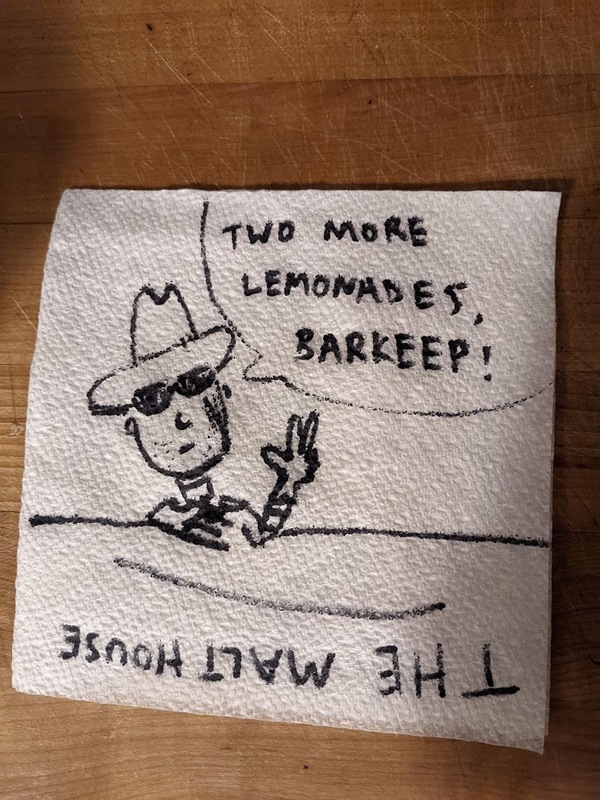 TWO MORE
LEMONADES,
BARKEEP!
THE MALT HOUSE